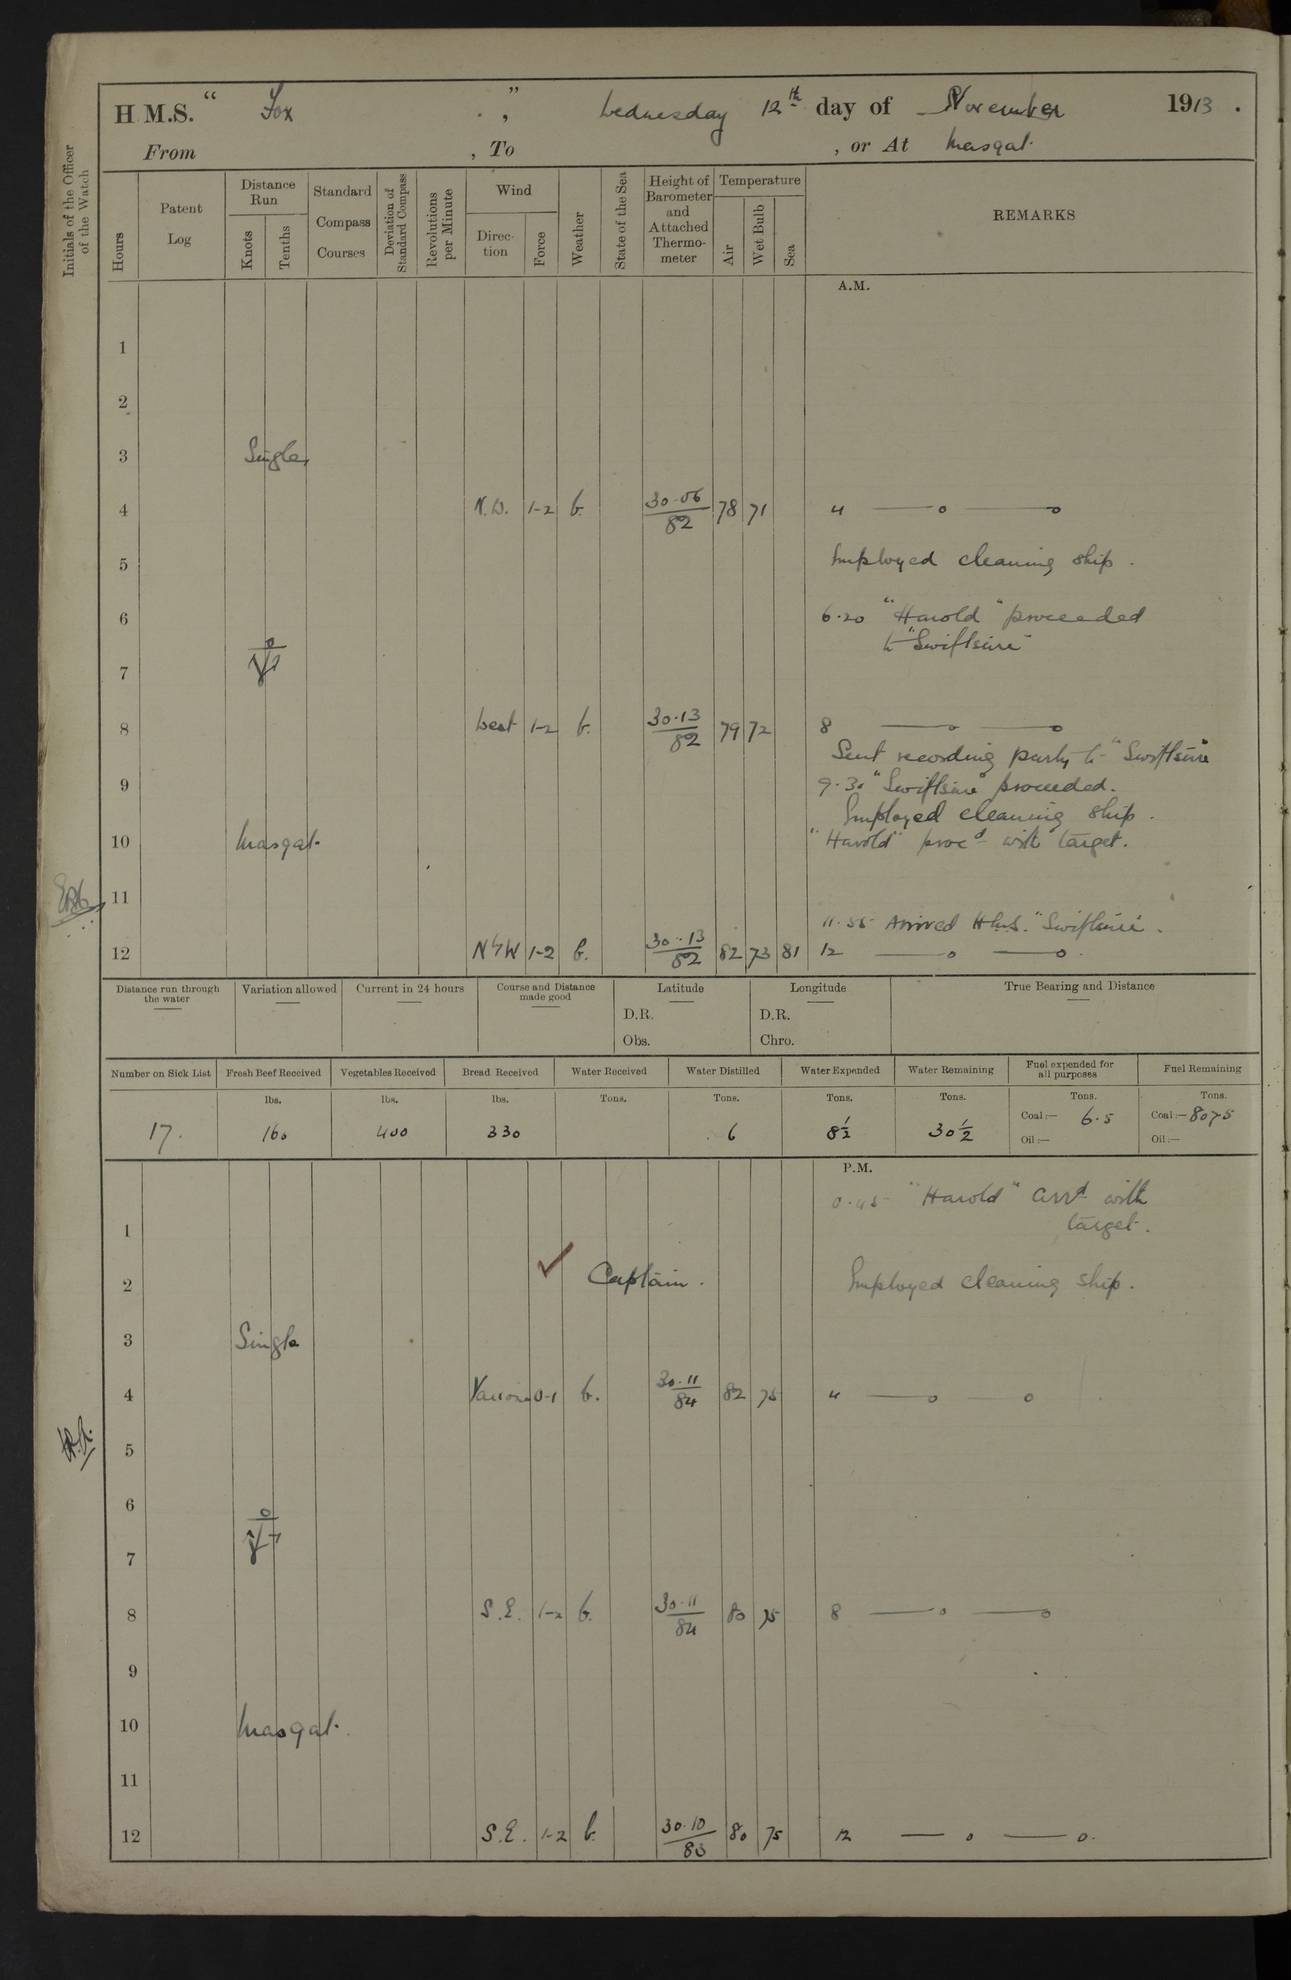 H M.S. “ Fox ” , Wednesday 12th day of November 1913 .
From , To , or At Masqat.
Initials of the Officer of the Watch
Hours
Patent Log
Distance Run
Knots
Tenths
Standard Compass Courses
Deviation of Standard Compass
Revolutions per Minute
Wind
Direc-tion
Force
Weather
State of the Sea
Height of Barometer and Attached Thermo-meter
Temperature
Air
Wet Bulb
Sea
REMARKS
A.M.
1
2
3 Single
4 N.W. 1-2 b. 30.06/82 78 71 4 —o —o
5 Employed cleaning ship.
6 6.20 "Harold" proceeded
to "Swiftsure"
7
8 West 1-2 b. 30.13/82 79 72 8 —o —o
Sent recording party to "Swiftsure"
9 9.30 "Swiftsure" proceeded.
Employed cleaning ship.
10 Masqat. "Harold" procd with target.
11
11.55 Arrived H.M.S. "Swiftsure".
12 NW 1-2 b. 30.13/82 82 73 81 12 —o —o
Distance run through the water
Variation allowed
Current in 24 hours
Course and Distance made good
Latitude
D.R.
Obs.
Longitude
D.R.
Chro.
True Bearing and Distance
Number on Sick List Fresh Beef Received Vegetables Received Bread Received Water Received Water Distilled Water Expended Water Remaining Fuel expended for all purposes Fuel Remaining
lbs. lbs. lbs. Tons. Tons. Tons. Tons. Tons. Tons.
17. 160 400 330 6 8½ 30½ Coal :— 6.5 Coal :— 807.5
Oil :— Oil :—
P.M.
0.45 "Harold" arrd with
1 target.
2 Captain. Employed cleaning ship.
3 Single
4 Various 0-1 b. 30.11/84 82 75 4 —o —o
5
6
7
8 S.E. 1-2 b. 30.11/84 80 75 8 —o —o
9
10 Masqat.
11
12 S.E. 1-2 b. 30.10/83 80 75 12 —o —o.